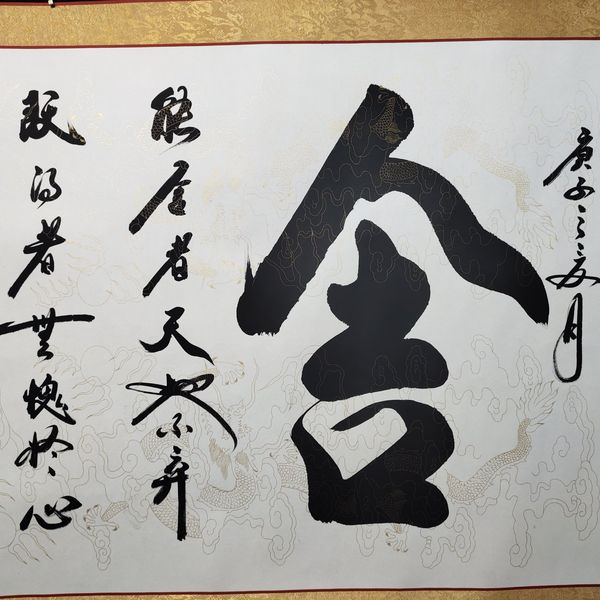 庚子之夏月
舍
能舍者天地不弃
既得者無愧於心